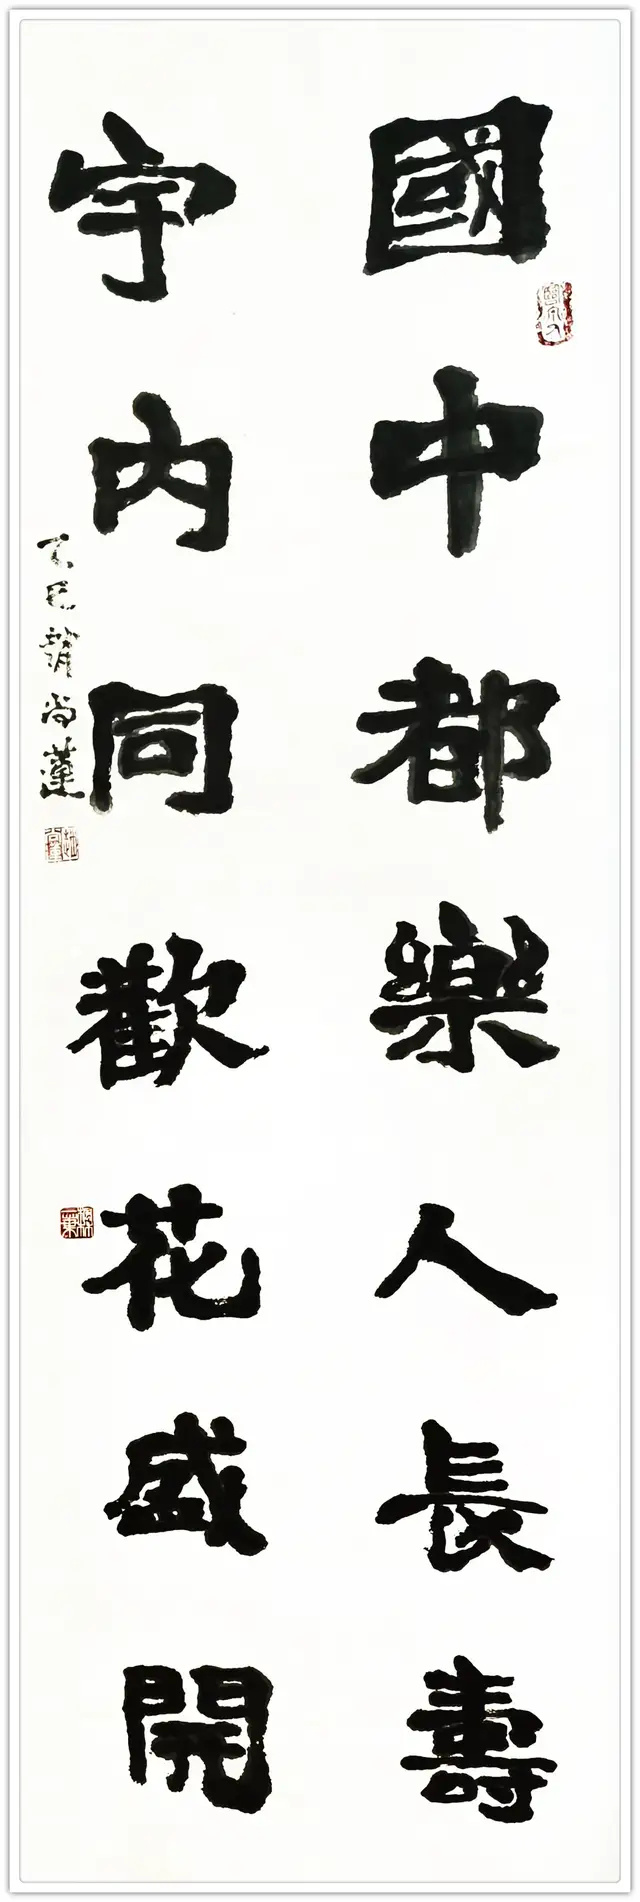 國中都樂人長壽
宇内同歡花盛開
乙巳 尚蓮